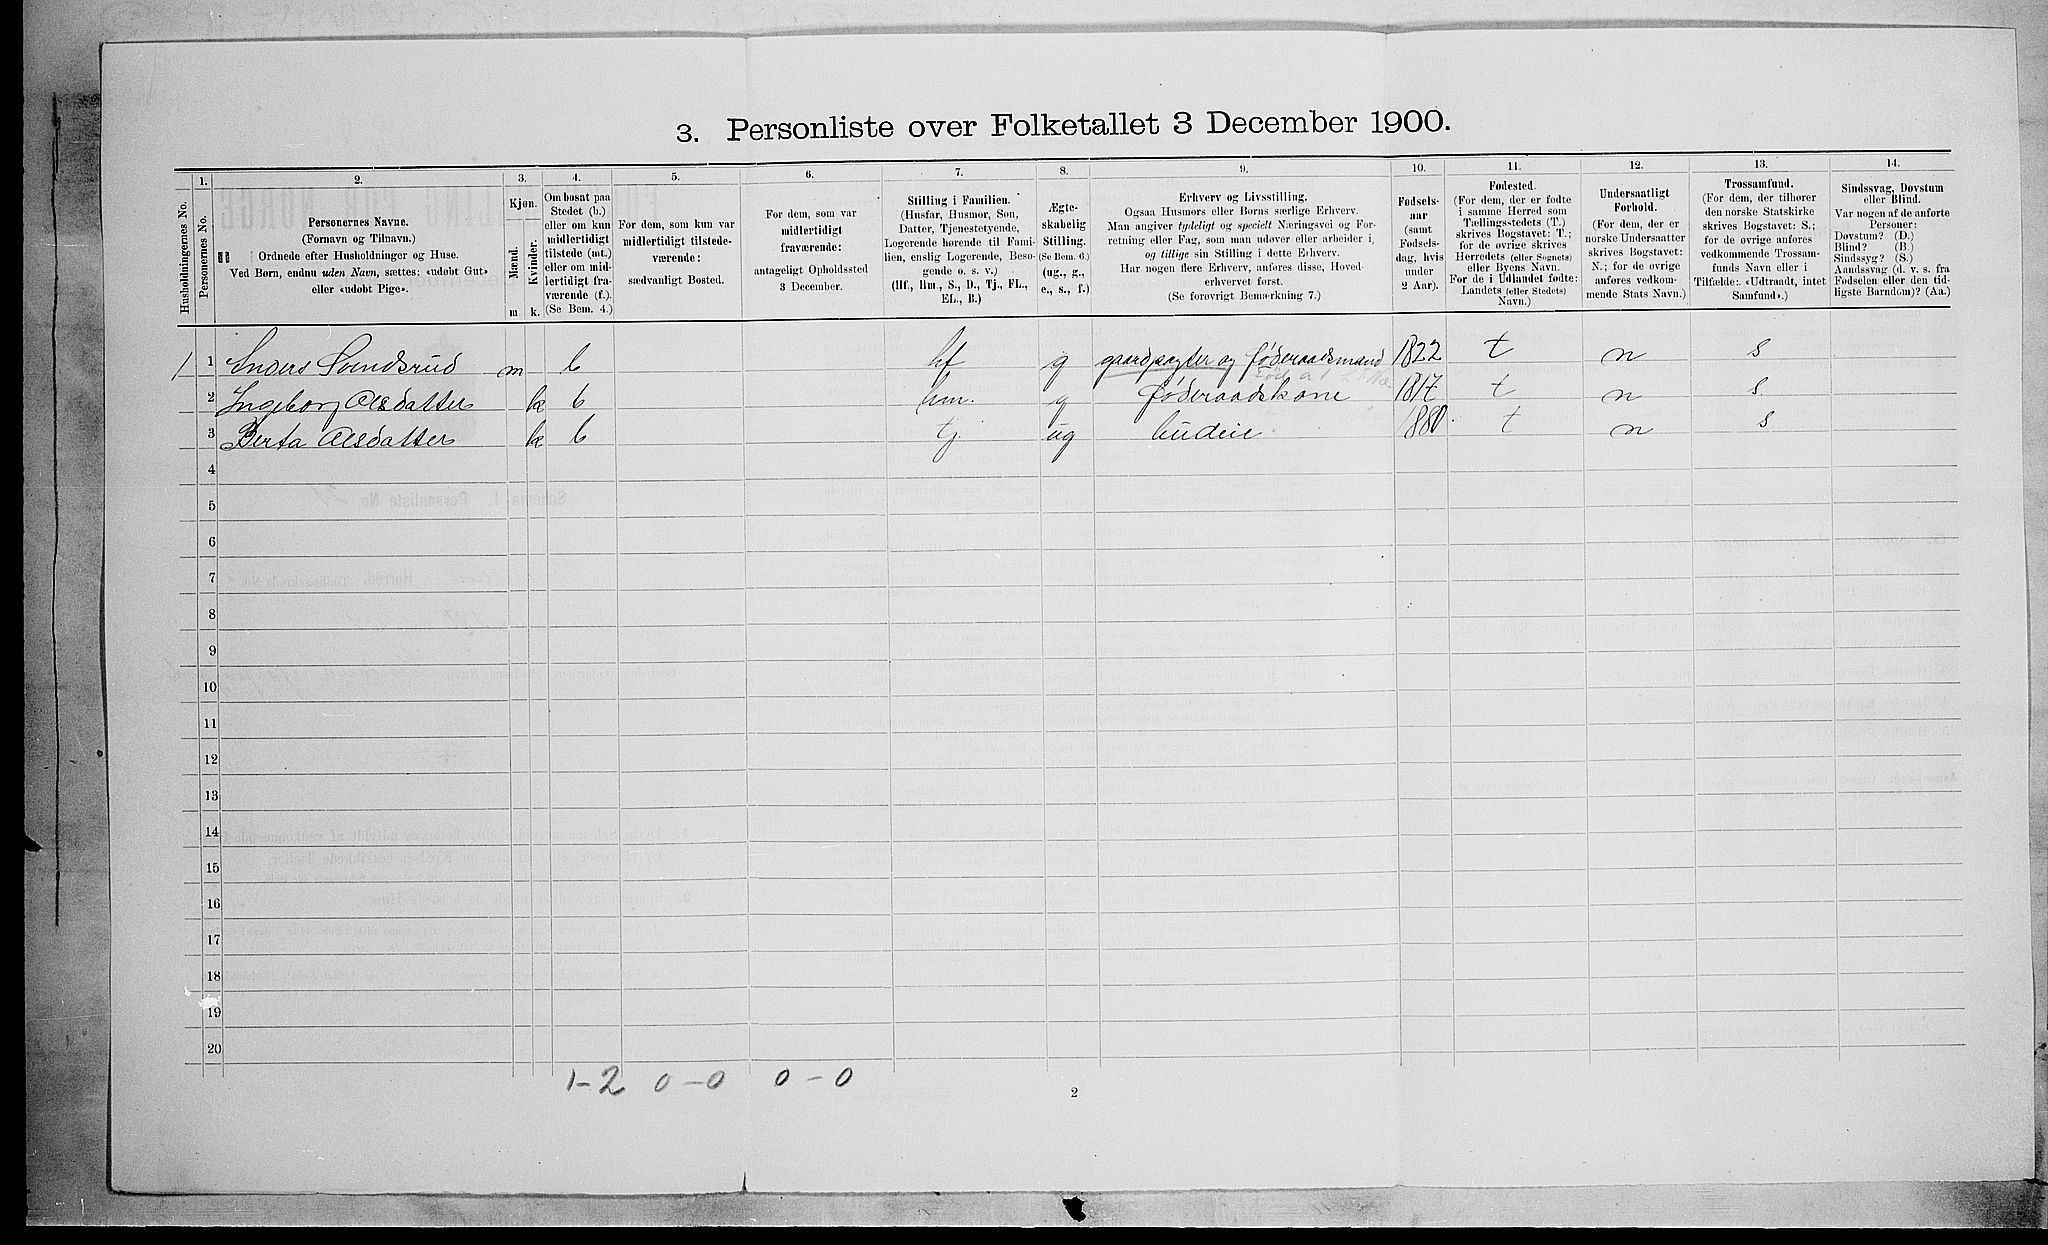 3. Personliste over Folketallet 3 December 1900.
Husholdningernes No.
1.
Personernes No.
2.
Personernes Navne.
(Fornavn og Tilnavn.)
Ordnede efter Husholdninger og Huse.
Ved Børn, endnu uden Navn, sættes: «udøbt Gut»
eller «udøbt Pige».
3.
Kjøn.
Mænd.
Kvinder.
m k.
4.
Om bosat paa
Stedet (b.)
eller om kun
midlertidigt
tilstede (mt.)
eller om mid-
lertidigt fra-
værende (f.).
(Se Bem. 4.)
5.
For dem, som kun var
midlertidigt tilstede-
værende:
sædvanligt Bosted.
6.
For dem, som var
midlertidigt
fraværende:
antageligt Opholdssted
3 December.
7.
Stilling i Familien.
(Husfar, Husmor, Søn,
Datter, Tjenestetyende,
Logerende hørende til Fami-
lien, enslig Logerende, Besø-
gende o. s. v.)
(Hf., Hm., S., D., Tj., FL.,
EL., B.)
8.
Ægte-
skabelig
Stilling.
(Se Bem. 6.)
(ug., g.,
e., s., f.)
9.
Erhverv og Livsstilling.
Ogsaa Husmors eller Børns særlige Erhverv.
Man angiver tydeligt og specielt Næringsvei og For-
retning eller Fag, som man udøver eller arbeider i,
og tillige sin Stilling i dette Erhverv.
Har nogen flere Erhverv, anføres disse, Hoved-
erhvervet først.
(Se forøvrigt Bemærkning 7.)
10.
Fødsels-
aar
(samt
Fødsels-
dag, hvis
under
2 Aar).
11.
Fødested.
(For dem, der er fødte
i samme Herred som
Tællingsstedets (T.)
skrives Bogstavet: T.;
for de øvrige skrives
Herredets (eller Sognets)
eller Byens Navn.
For de i Udlandet fødte:
Landets (eller Stedets)
Navn.)
12.
Undersaatligt
Forhold.
(For dem, der er
norske Undersaatter
skrives Bogstavet:
N.; for de øvrige
anføres vedkom-
mende Stats Navn.)
13.
Trossamfund.
(For dem, der tilhører
den norske Statskirke
skrives Bogstavet: S.;
for de øvrige anføres
vedkommende Trossam-
funds Navn eller i
Tilfælde: «Udtraadt, intet
Samfund».)
14.
Sindssvag, Døvstum
eller Blind.
Var nogen af de anførte
Personer:
Døvstum? (D.)
Blind? (B.)
Sindssyg? (S.)
Aandssvag (d. v. s. fra
Fødselen eller den tid-
ligste Barndom)? (Aa.)
1 1 Anders Svendsrud m b hf g gaardpagter og føderaadsmand 1822 t n s
2 Ingeborg Olsdatter k b hm. g føderaadskone 1817 t n s
3 Berta Olsdatter k b tj. ug budeie 1880. t n s
4
5
6
7
8
9
10
11
12
13
14
15
16
17
18
19
20
1-2 0-0 0-0
2